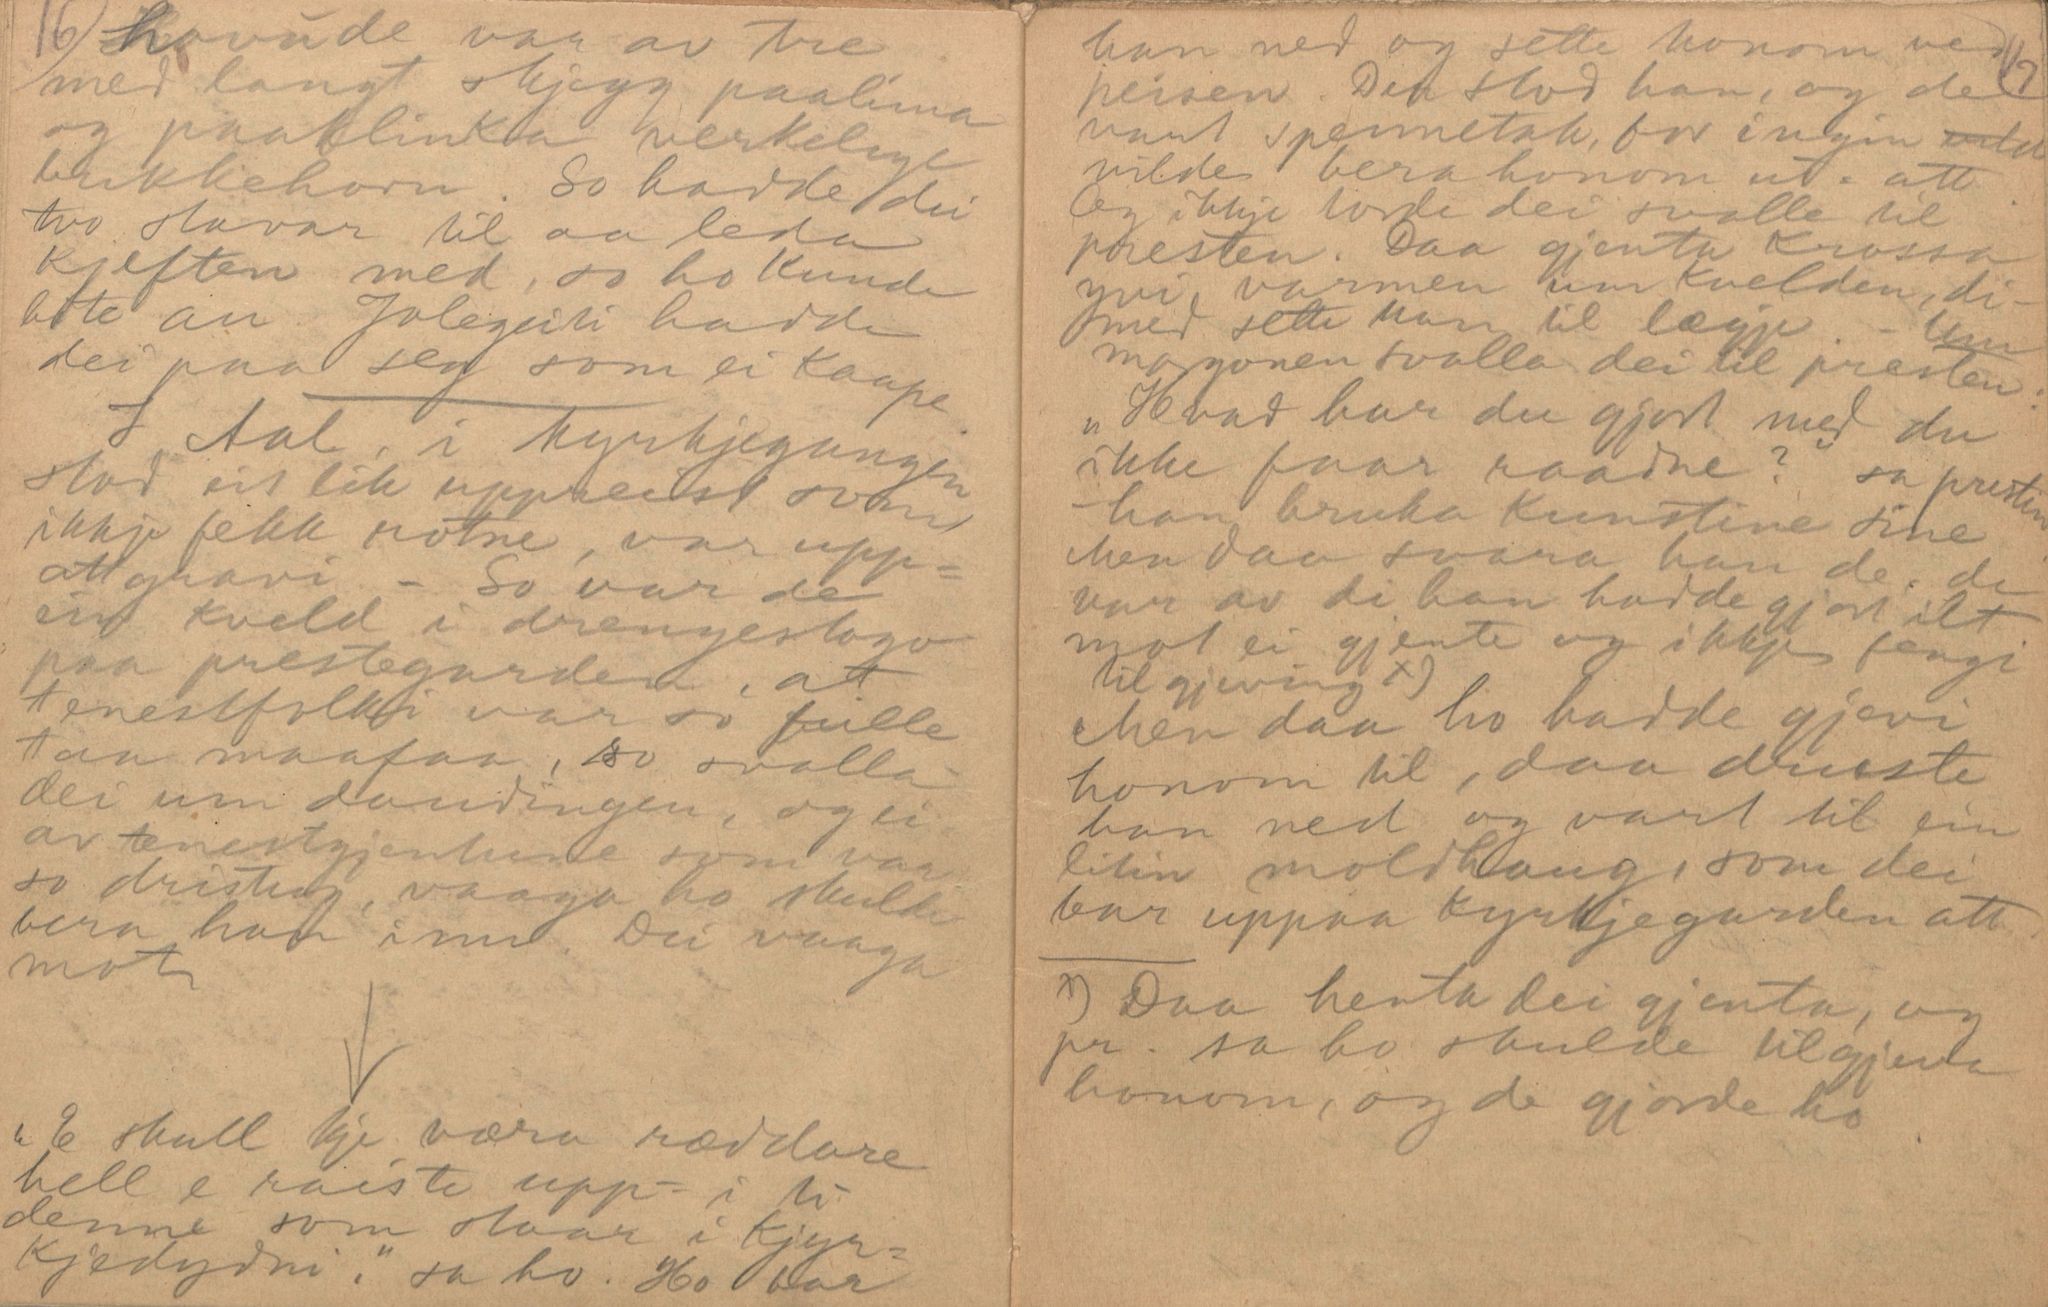 16)
hovude var av tre
med langt skjegg paalima
og paaklinka verkelege
bukkehorn. So hadde dei
tvo stavar til aa leda
kjeften med, so ho kunde
bite an. Jolegeiti hadde
dei paa seg som ei kaape.
I Aal, i kyrkjegangen
stod eit lik uppreist som
ikkje fekk rotne, var upp-
att gravi - So var de
ein kveld i drengestogo
paa prestegarden, att
tenestfolki var so fulle
taa maafaa, so svalla
dei um daudingen, og ei
av tenestgjentune som var
so dristug, vaaga ho skulde
bera han inn. Dei vaaga
mot
„E skull kje væra ræddare
hell e raiste upp- i ti
denne som staar i kjyr-
kjedydni." sa ho. Ho bar
17
han ned og sette honom ved
peisen. Der stod han, og de
vart spennetak, for ingin vild
vilde bera honom ut- att
Og ikkje torde dei svalle til
presten. Daa gjenta krossa
yvi varmen um kvelden, di-
med sette han til lægje - Um
morgonen svalla dei til presten:
„Hvad har du gjort med du
ikke faar raadne?" sa prestin
- han bruka kunstine sine
Men daa svara han de. de
var av di han hadde gjort ilt
mot ei gjente og ikkje fengi
tilgjeving x)
Men daa ho hadde gjevi
honom til, daa druste
han ned og vart til ein
litin moldhaug, som dei
bar uppaa kyrkjegarden att.
x) Daa henta dei gjenta, og
pr. sa ho skulde tilgjeva
honom, og de gjorde ho